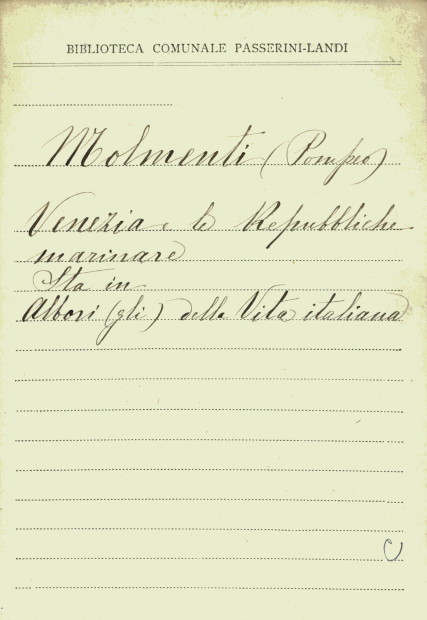 BIBLIOTECA COMUNALE PASSERINI-LANDI
Molmenti (Pompeo)
Venezia e le Repubbliche
marinare
Sta in
Albori (gli) della Vita italiana